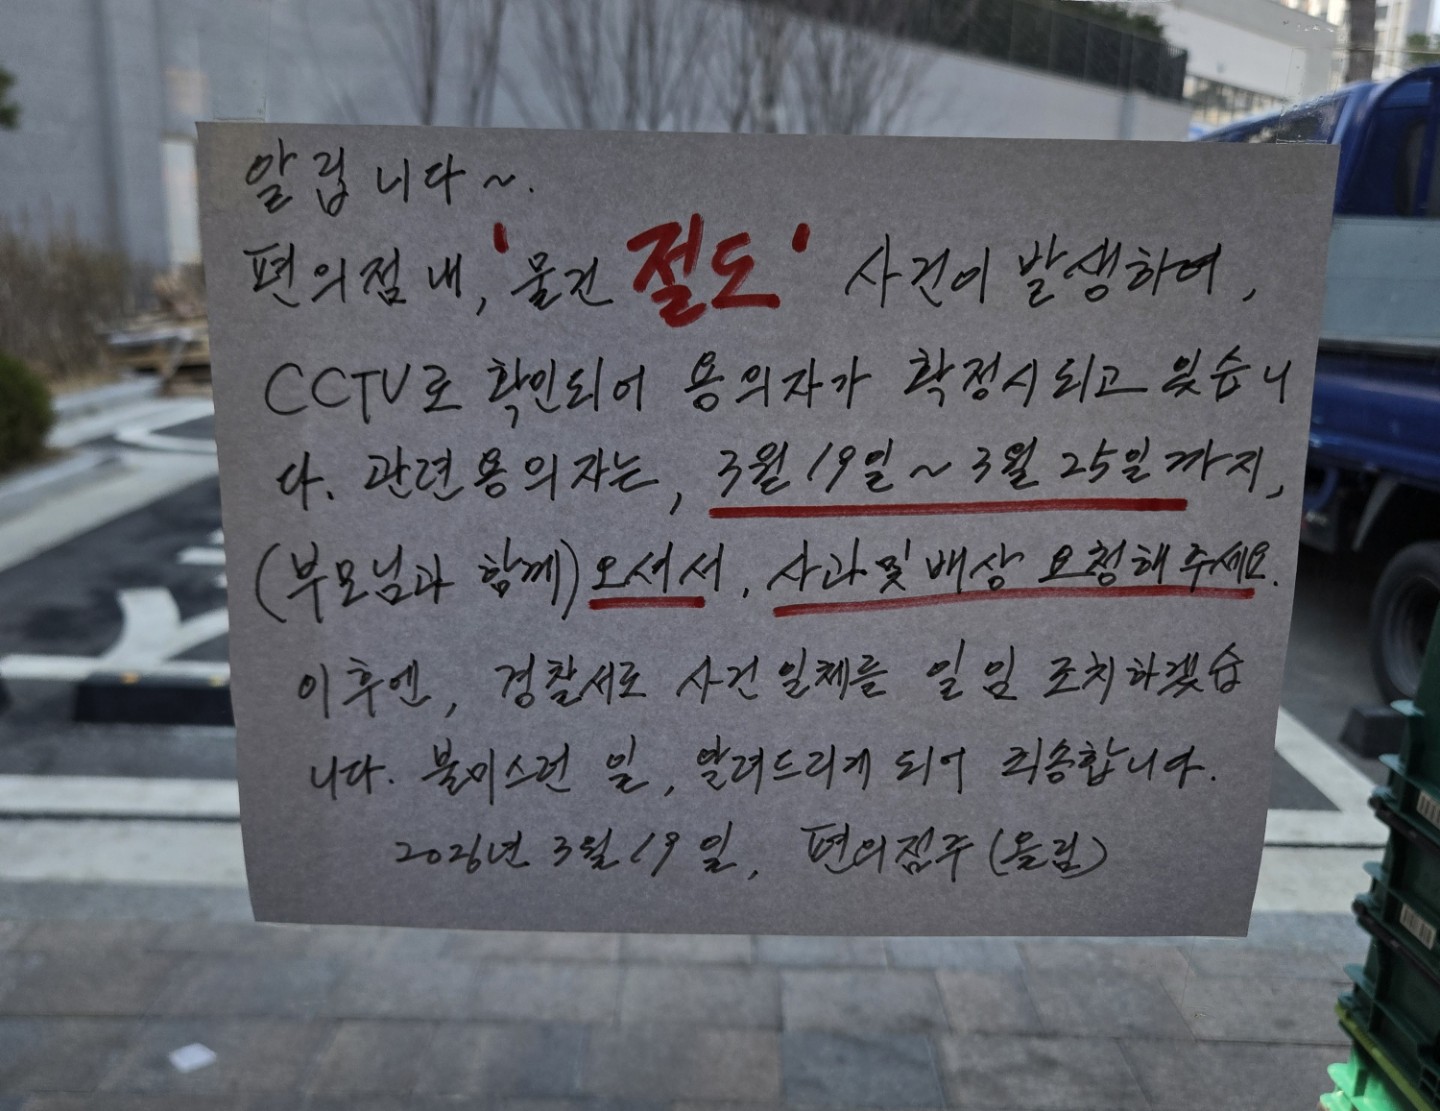 알립니다~.
편의점 내, '물건 절도' 사건이 발생하여,
CCTV로 확인되어 용의자가 확정시 되고 있습니
다. 관련 용의자는, 3월 19일 ~ 3월 25일까지,
(부모님과 함께) 오셔서, 사과 및 배상 요청해 주세요.
이후엔, 경찰서로 사건 일체를 일임 조치하겠습
니다. 불미스런 일, 알려드리게 되어 죄송합니다.
2026년 3월 19일, 편의점주 (올림)